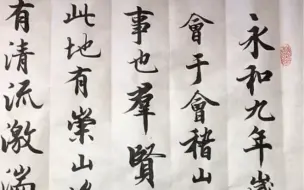 永和九年歲
會于會稽山
事也羣賢
此地有崇山
有清流激湍